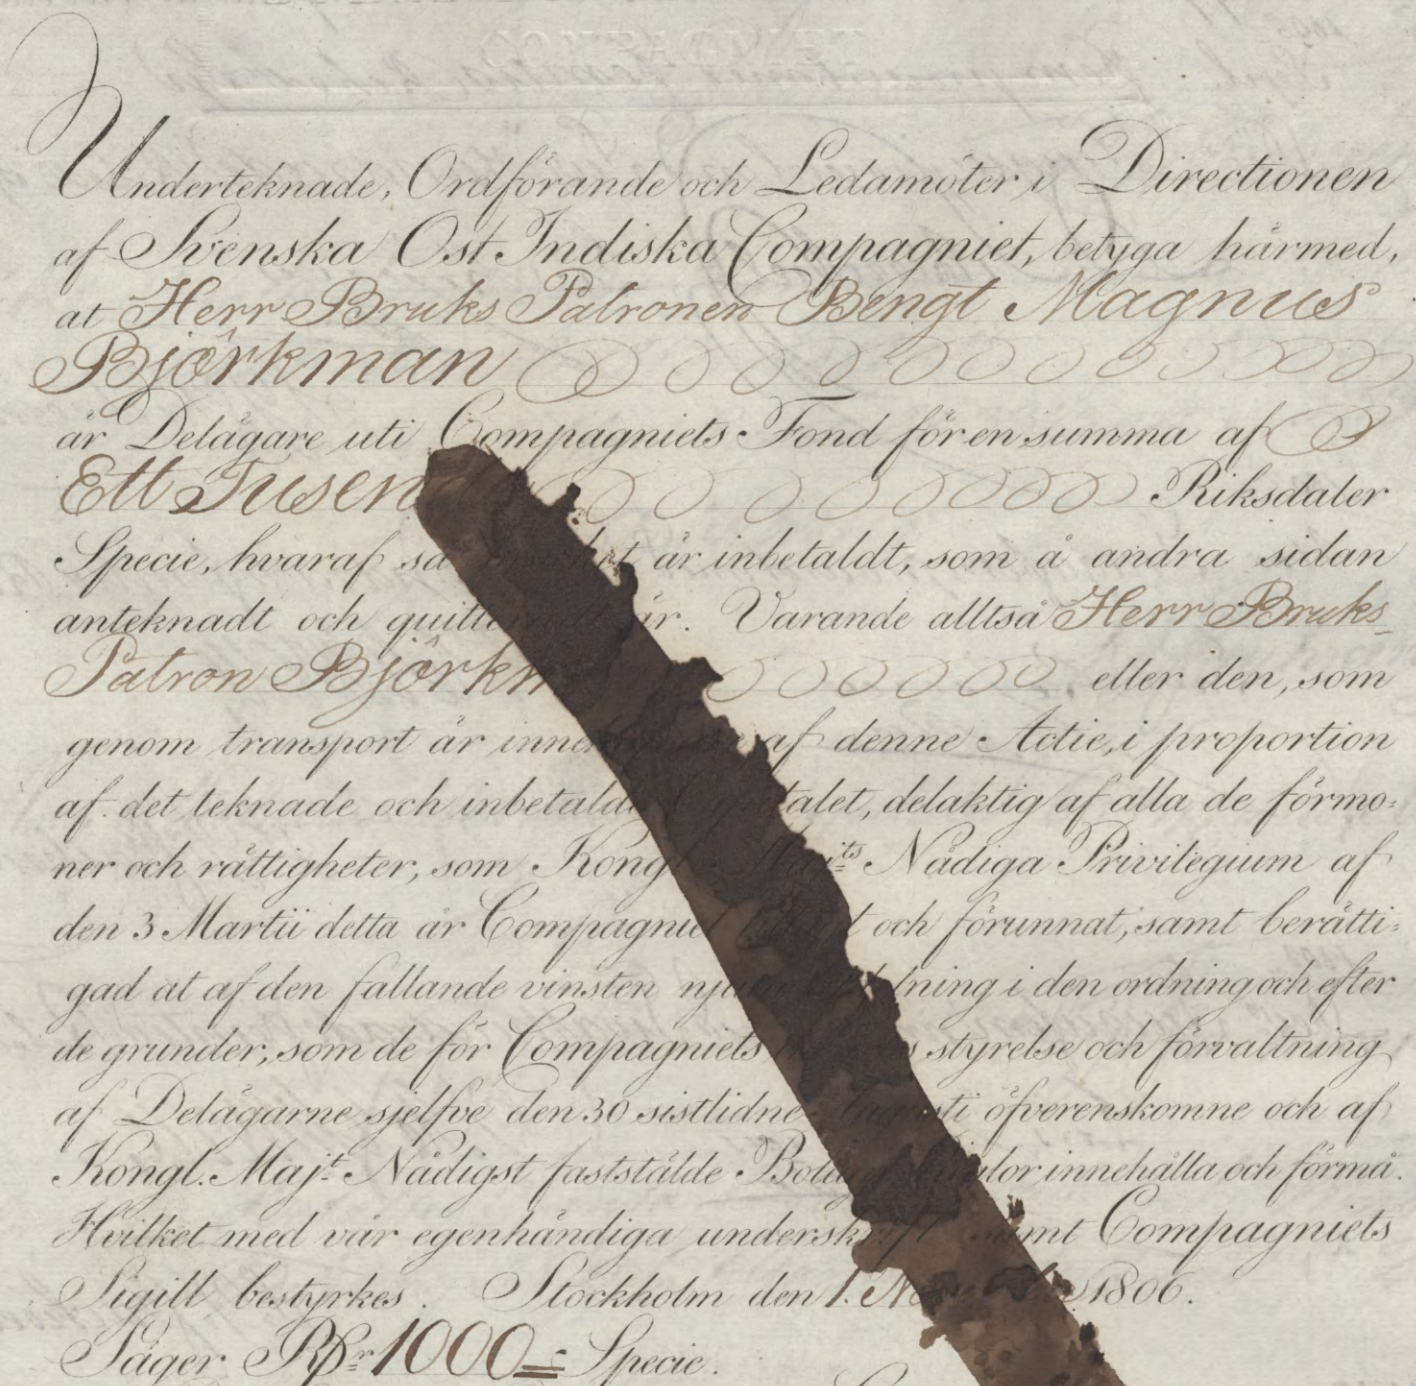 Underteknade, Ordförande och Ledamöter i Directionen
af Svenska Ost Indiska Compagniet, betyga härmed,
at Herr Bruks Patronen Bengt Magnus
Björkman
är Delägare uti Compagniets Fond för en summa af
Ett Tusen Riksdaler
Specie, hvaraf är inbetaldt, som å andra sidan
anteknadt och är. Varande alltså Herr Bruks-
Patron eller den, som
genom transport är af denne Actie, i proportion
af det teknade och delaktig af alla de förmo-
ner och rättigheter, som Nådiga Privilegium af
den 3 Martii detta år och förunnat, samt berätti-
gad at af den fallande vinsten i den ordning och efter
de grunder, som de för Compagniets styrelse och förvaltning
af Delägarne sjelfve den 30 sistlidne öfverenskomne och af
Kongl. Majt. Nådigst faststälde innehålla och förmå.
Hvilket med vår egenhändiga Compagniets
Sigill bestyrkes. Stockholm den 1. 1806.
Säger Rdr 1000 Specie.